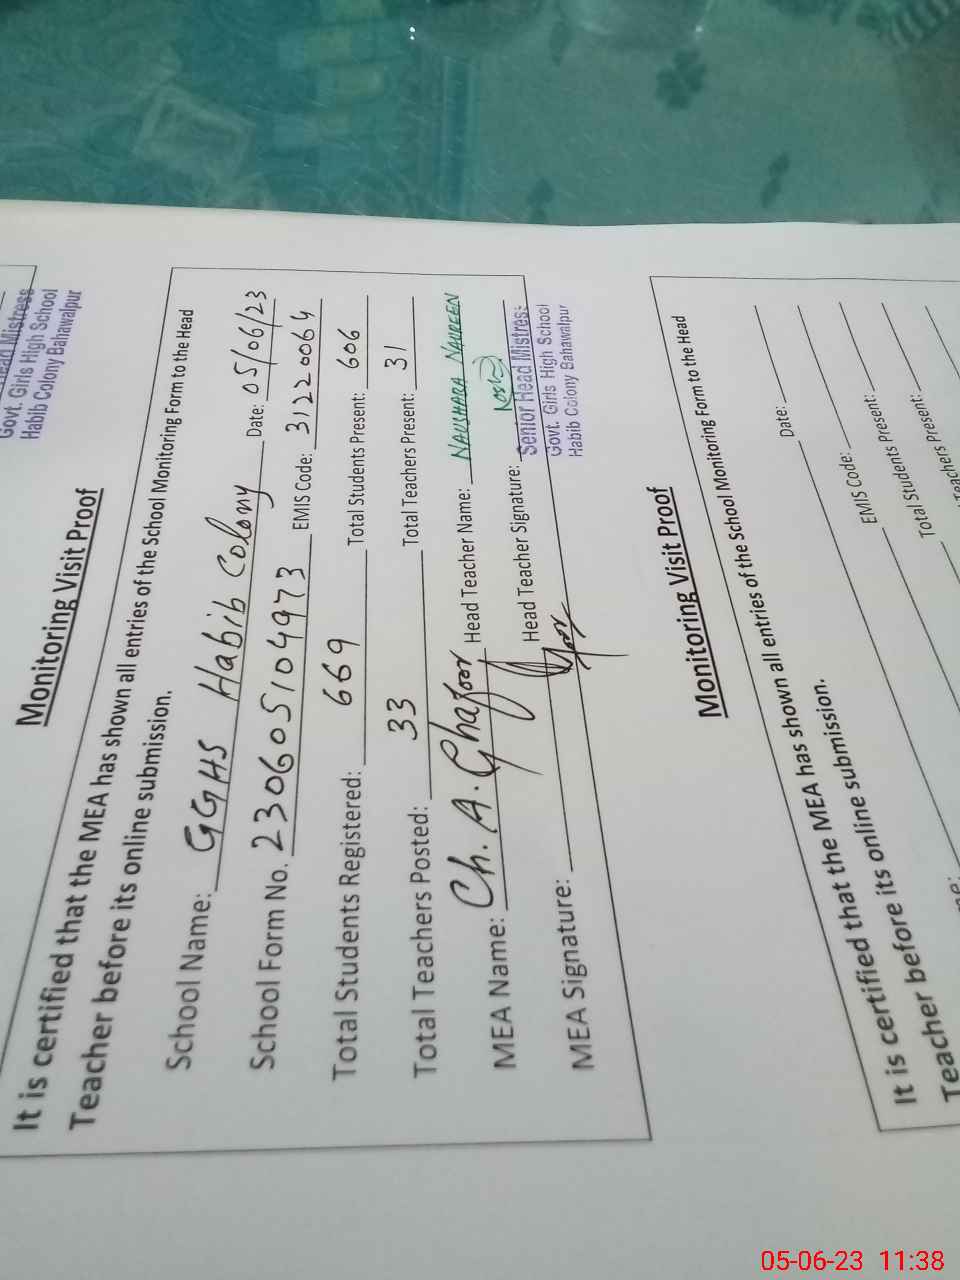 Head Mistress
Govt. Girls High School
Habib Colony Bahawalpur
Monitoring Visit Proof
It is certified that the MEA has shown all entries of the School Monitoring Form to the Head
Teacher before its online submission.
School Name: GGHS Habib Colony Date: 05/06/23
School Form No. 230605104973 EMIS Code: 31220064
Total Students Registered: 669 Total Students Present: 606
Total Teachers Posted: 33 Total Teachers Present: 31
MEA Name: Ch. A. Ghafoor Head Teacher Name: NAUSHARA NAUREEN
MEA Signature: Head Teacher Signature:
Senior Head Mistres:
Govt. Girls High School
Habib Colony Bahawalpur
Monitoring Visit Proof
It is certified that the MEA has shown all entries of the School Monitoring Form to the Head
Teacher before its online submission.
Date:
EMIS Code:
Total Students Present:
Teachers Present:
05-06-23 11:38